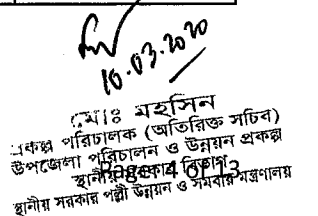 10.03.2020
মোঃ মহসিন
প্রকল্প পরিচালক (অতিরিক্ত সচিব)
উপজেলা পরিচালন ও উন্নয়ন প্রকল্প
স্থানীয় সরকার বিভাগ
Page 4 of 13
স্থানীয় সরকার পল্লী উন্নয়ন ও সমবায় মন্ত্রণালয়